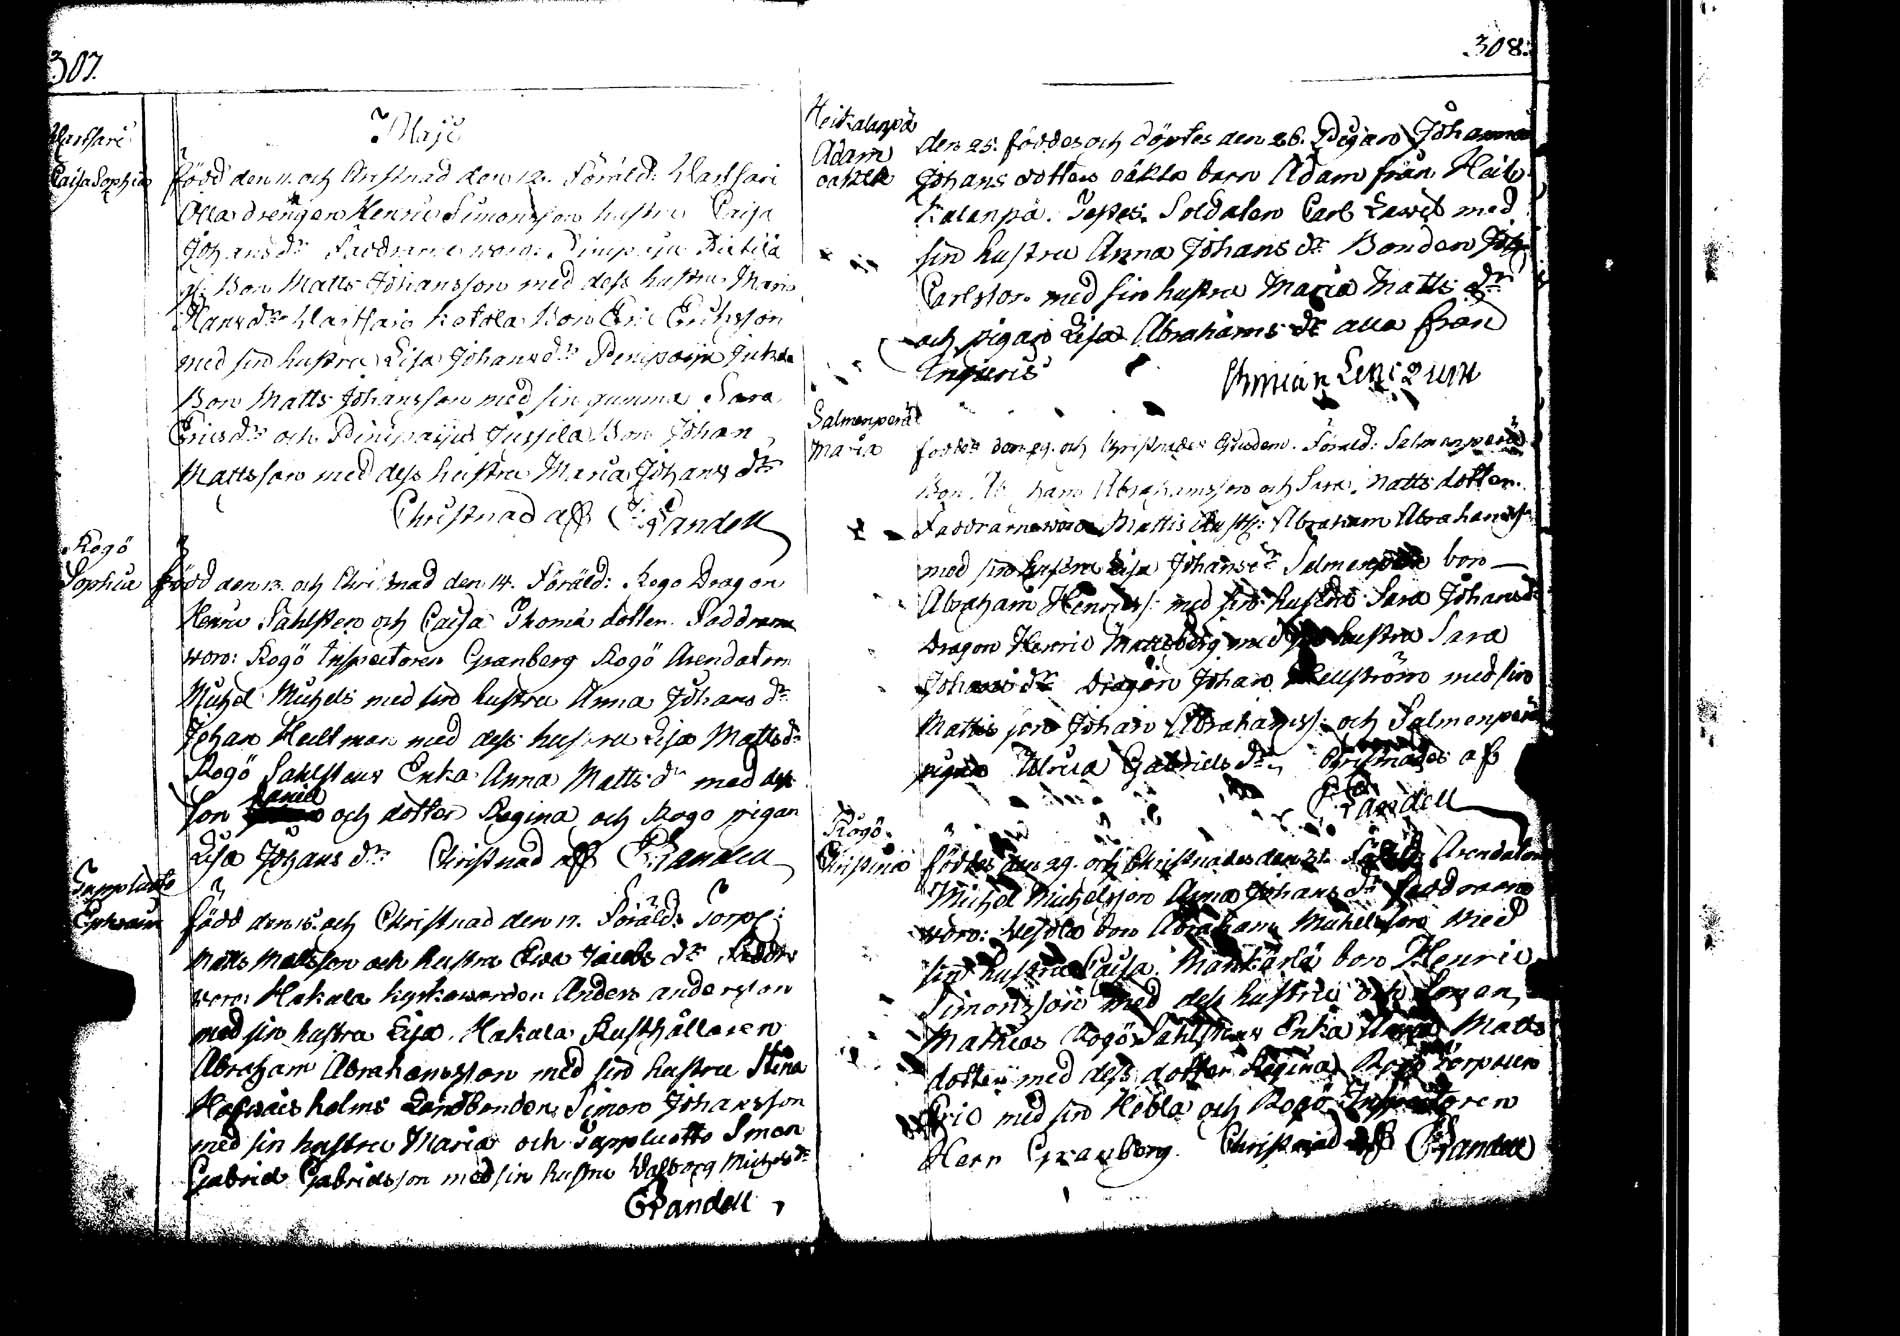 307.
Maji
Caisa Sophia
född den 11. och Christnad den 12. Föräld:
drengen Henric Simonsson hustru Caisa
Johansdr Faddrarne woro:
Bon Matts Johansson med dess hustru Maria
Hansdr Bon Eric Ericsson
med sin hustru Lisa Johansdr
Bon Matts Johansson med sin gumma Sara
Ericsdr och Bon Johan
Mattsson med dess hustru Maria Johansdr
Christnad aff Pandell
Rogö
Sophia
född den 13. och Christnad den 14. Föräld: Rogo Dragon
Henric Sahlsten och Caisa Thomæ dotter. Faddrarne
woro: Rogö Inspectoren Granberg Rogö Arendatorn
Michel Michels med sin hustru Anna Johansdr
Johan Hellman med dess hustru Lisa Mattsdr
Rogö Sahlstens Enka Anna Mattsdr med dess
son Daniel och dotter Regina och Rogo pigan
Lisa Johansdr Christnad aff Pandell
Tappluoto
Ephraim
född den 15. och Christnad den 17. Föräld: Torp:
Matts Mattsson och hustru Ewa Jacobsdr Faddr:
woro: Hakala kyrkowärden Anders andersson
med sin hustru Lisa. Hakala Rusthållaren
Abraham Abrahamsson med sin hustru Stina
holms Landbonden Simon Johansson
med sin hustru Maria och Tappluotto
Gabriel Gabrielsson med sin hustru Walborg Michelsdr
Pandell
308.
Heikalanpä
Adam
oäkta
den 25. föddes och döptes den 26. Pigan Johanna
Johans dotters oäkta barn Adam från Hei
kalanpä. Testes. Soldaten Carl Lewis med
sin hustru Anna Johansdr Bonden Joh
Carlsson med sin hustru Maria Mattsdr
och pigan Lisa Abrahamsdr alla från
Salmenperä
Maria
föddes den 29. och Christnades Ejusdem. Föräld: Salmenperä
Bon Abraham Abrahamsson och Sara Matts dotter.
Faddrarne woro Mattis Rusth: Abraham Abrahamss:
med sin hustru Lisa Johansdr Salmenperä bon
Abraham Henricss: med sin hustru Sara Johansdr
Dragon Henric Mattsberg med sin hustru Sara
Johansdr Dragon Johan Hellström med sin
Mattis son Johan Abrahamss: och Salmenperä
pigan Ulrica Gabrielsdr Christnades af
Pandell
Rogö
Christina
föddes den 29. och Christnades den 31. Föräld: Arendatorn
Michel Michelsson Anna Johansdr Faddrarne
woro: bon Abraham Michelsson med
sin hustru Caisa. bon Henric
Simonsson med dess hustru och sonen
Mathias Rogö Sahlstens Enka Anna Matts
dotter med dess dotter Regina Rogö Torparen
Eric med sin Hebla och Rogö Inspectoren
Herr Granberg. Christnad aff Pandell